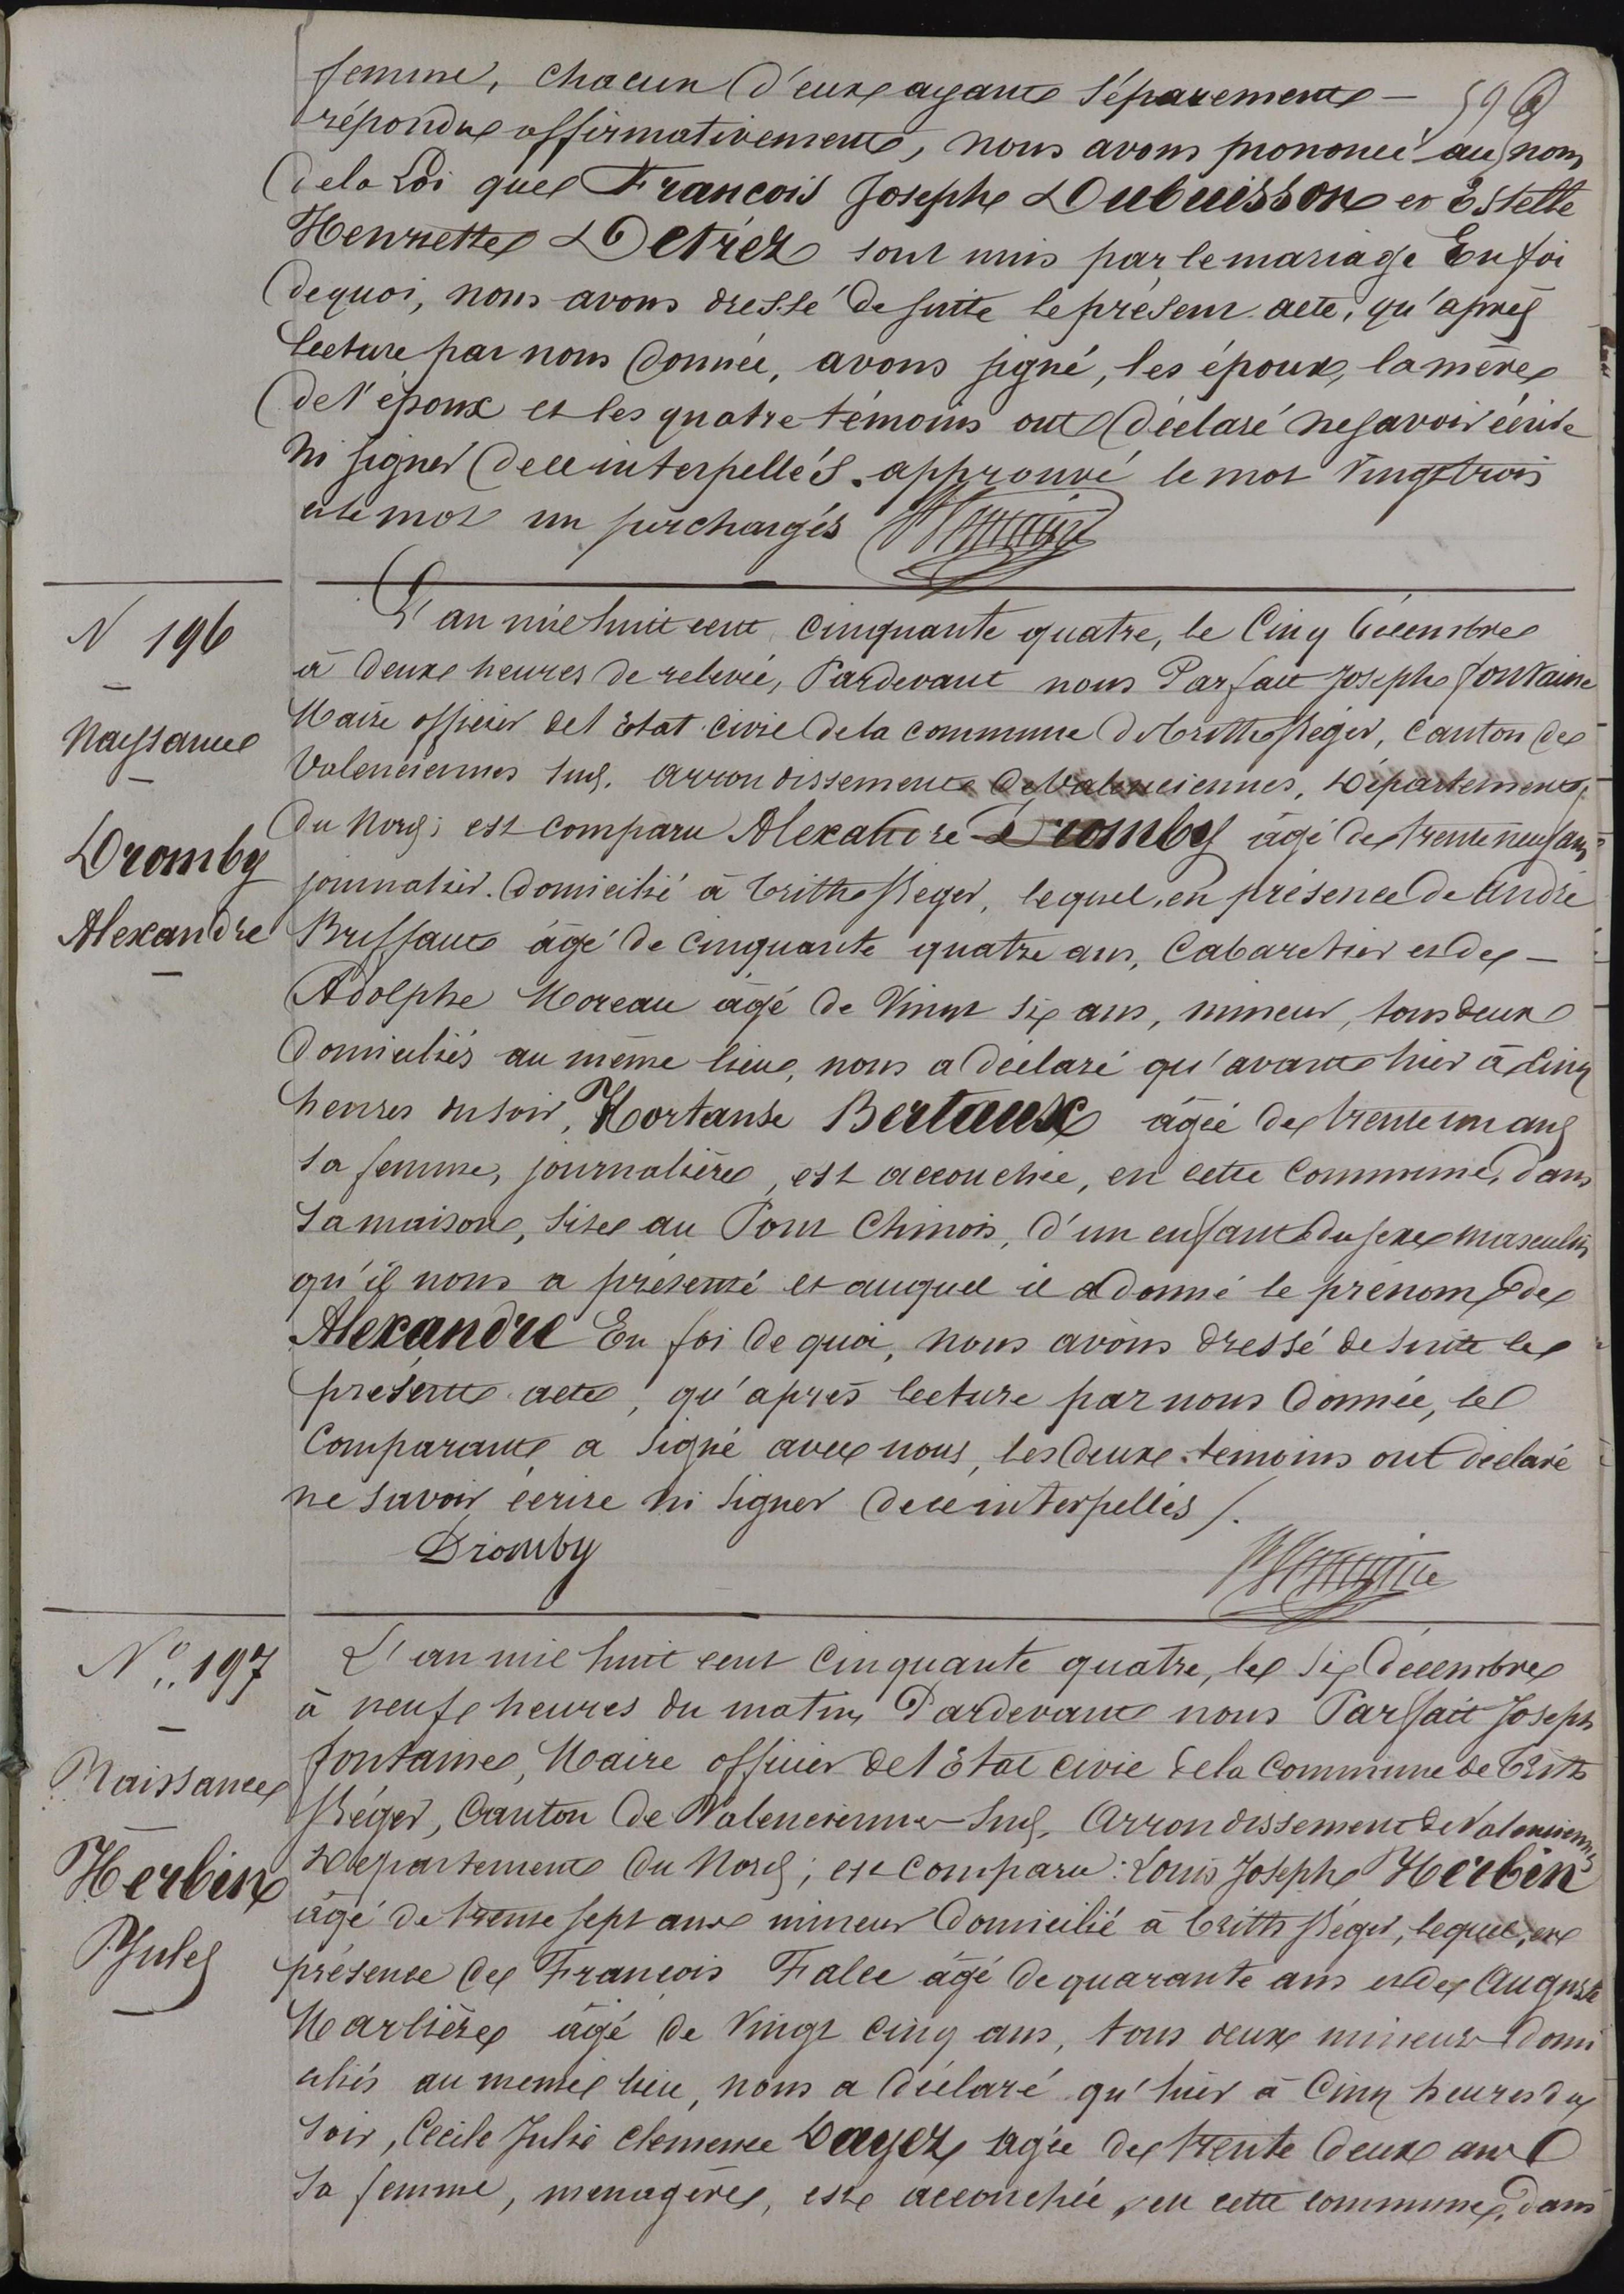 femme, chacun d'eux ayant séparément —
répondu affirmativement, nous avons prononcé au nom
de la Loi que François Joseph Dubuisson et Estelle
Henriette Détrez sont unis par le mariage En foi
de quoi, nous avons dressé de suite le présent acte, qu'après
lecture par nous donnée, avons signé, les époux, la mère
de l'époux et les quatre témoins ont déclaré ne savoir écrire
ni signer de ce interpellés. approuvé le mot vingt trois
et le mot un surchargés
N 196
Naissance
Dromby
Alexandre
L'an mil huit cent cinquante quatre, le Cinq Décembre
à deux heures de relevée, Pardevant nous Parfait Joseph fontaine
Maire officier de l'Etat civil de la commune de Trith St Léger, canton de
Valenciennes Sud, arrondissement de Valenciennes, Département
du Nord; est comparu Alexandre Dromby âgé de trente neuf ans
journalier domicilié à Trith St Léger, lequel, en présence de André
Briffaut âgé de cinquante quatre ans, Cabaretier et de —
Adolphe Moreau âgé de Vingt six ans, mineur, tous deux
domiciliés au même lieu, nous a déclaré qu'avant hier à cinq
heures du soir, Hortanse Bertaux âgée de trente un ans
sa femme, journalière, est accouchée, en cette commune, dans
sa maison, sise au Pont Chinois, d'un enfant du sexe masculin
qu'il nous a présenté et auquel il a donné le prénom de
Alexandre En foi de quoi, nous avons dressé de suite le
présent acte, qu'après lecture par nous donnée, le
Comparant a signé avec nous, les deux témoins ont déclaré
ne savoir écrire ni signer de ce interpellés /.
Dromby
N° 197
Naissance
Herbin
Jules
L'an mil huit cent cinquante quatre, le six décembre
à neuf heures du matin, Pardevant nous Parfait Joseph
fontaine, Maire officier de l'Etat civil de la commune de Trith
St Léger, Canton de Valenciennes Sud, Arrondissement de Valenciennes
Département du Nord; est comparu: Louis Joseph Herbin
âgé de trente sept ans mineur domicilié à Trith St Léger, lequel, en
présence de François Falce âgé de quarante ans et de Auguste
Marlière âgé de Vingt cinq ans, tous deux mineurs domi
ciliés au même lieu, nous a déclaré qu'hier à Cinq heures du
soir, Cécile Julie clemence Dayez âgée de trente deux ans
sa femme, menagère, est accouchée, en cette commune, dans